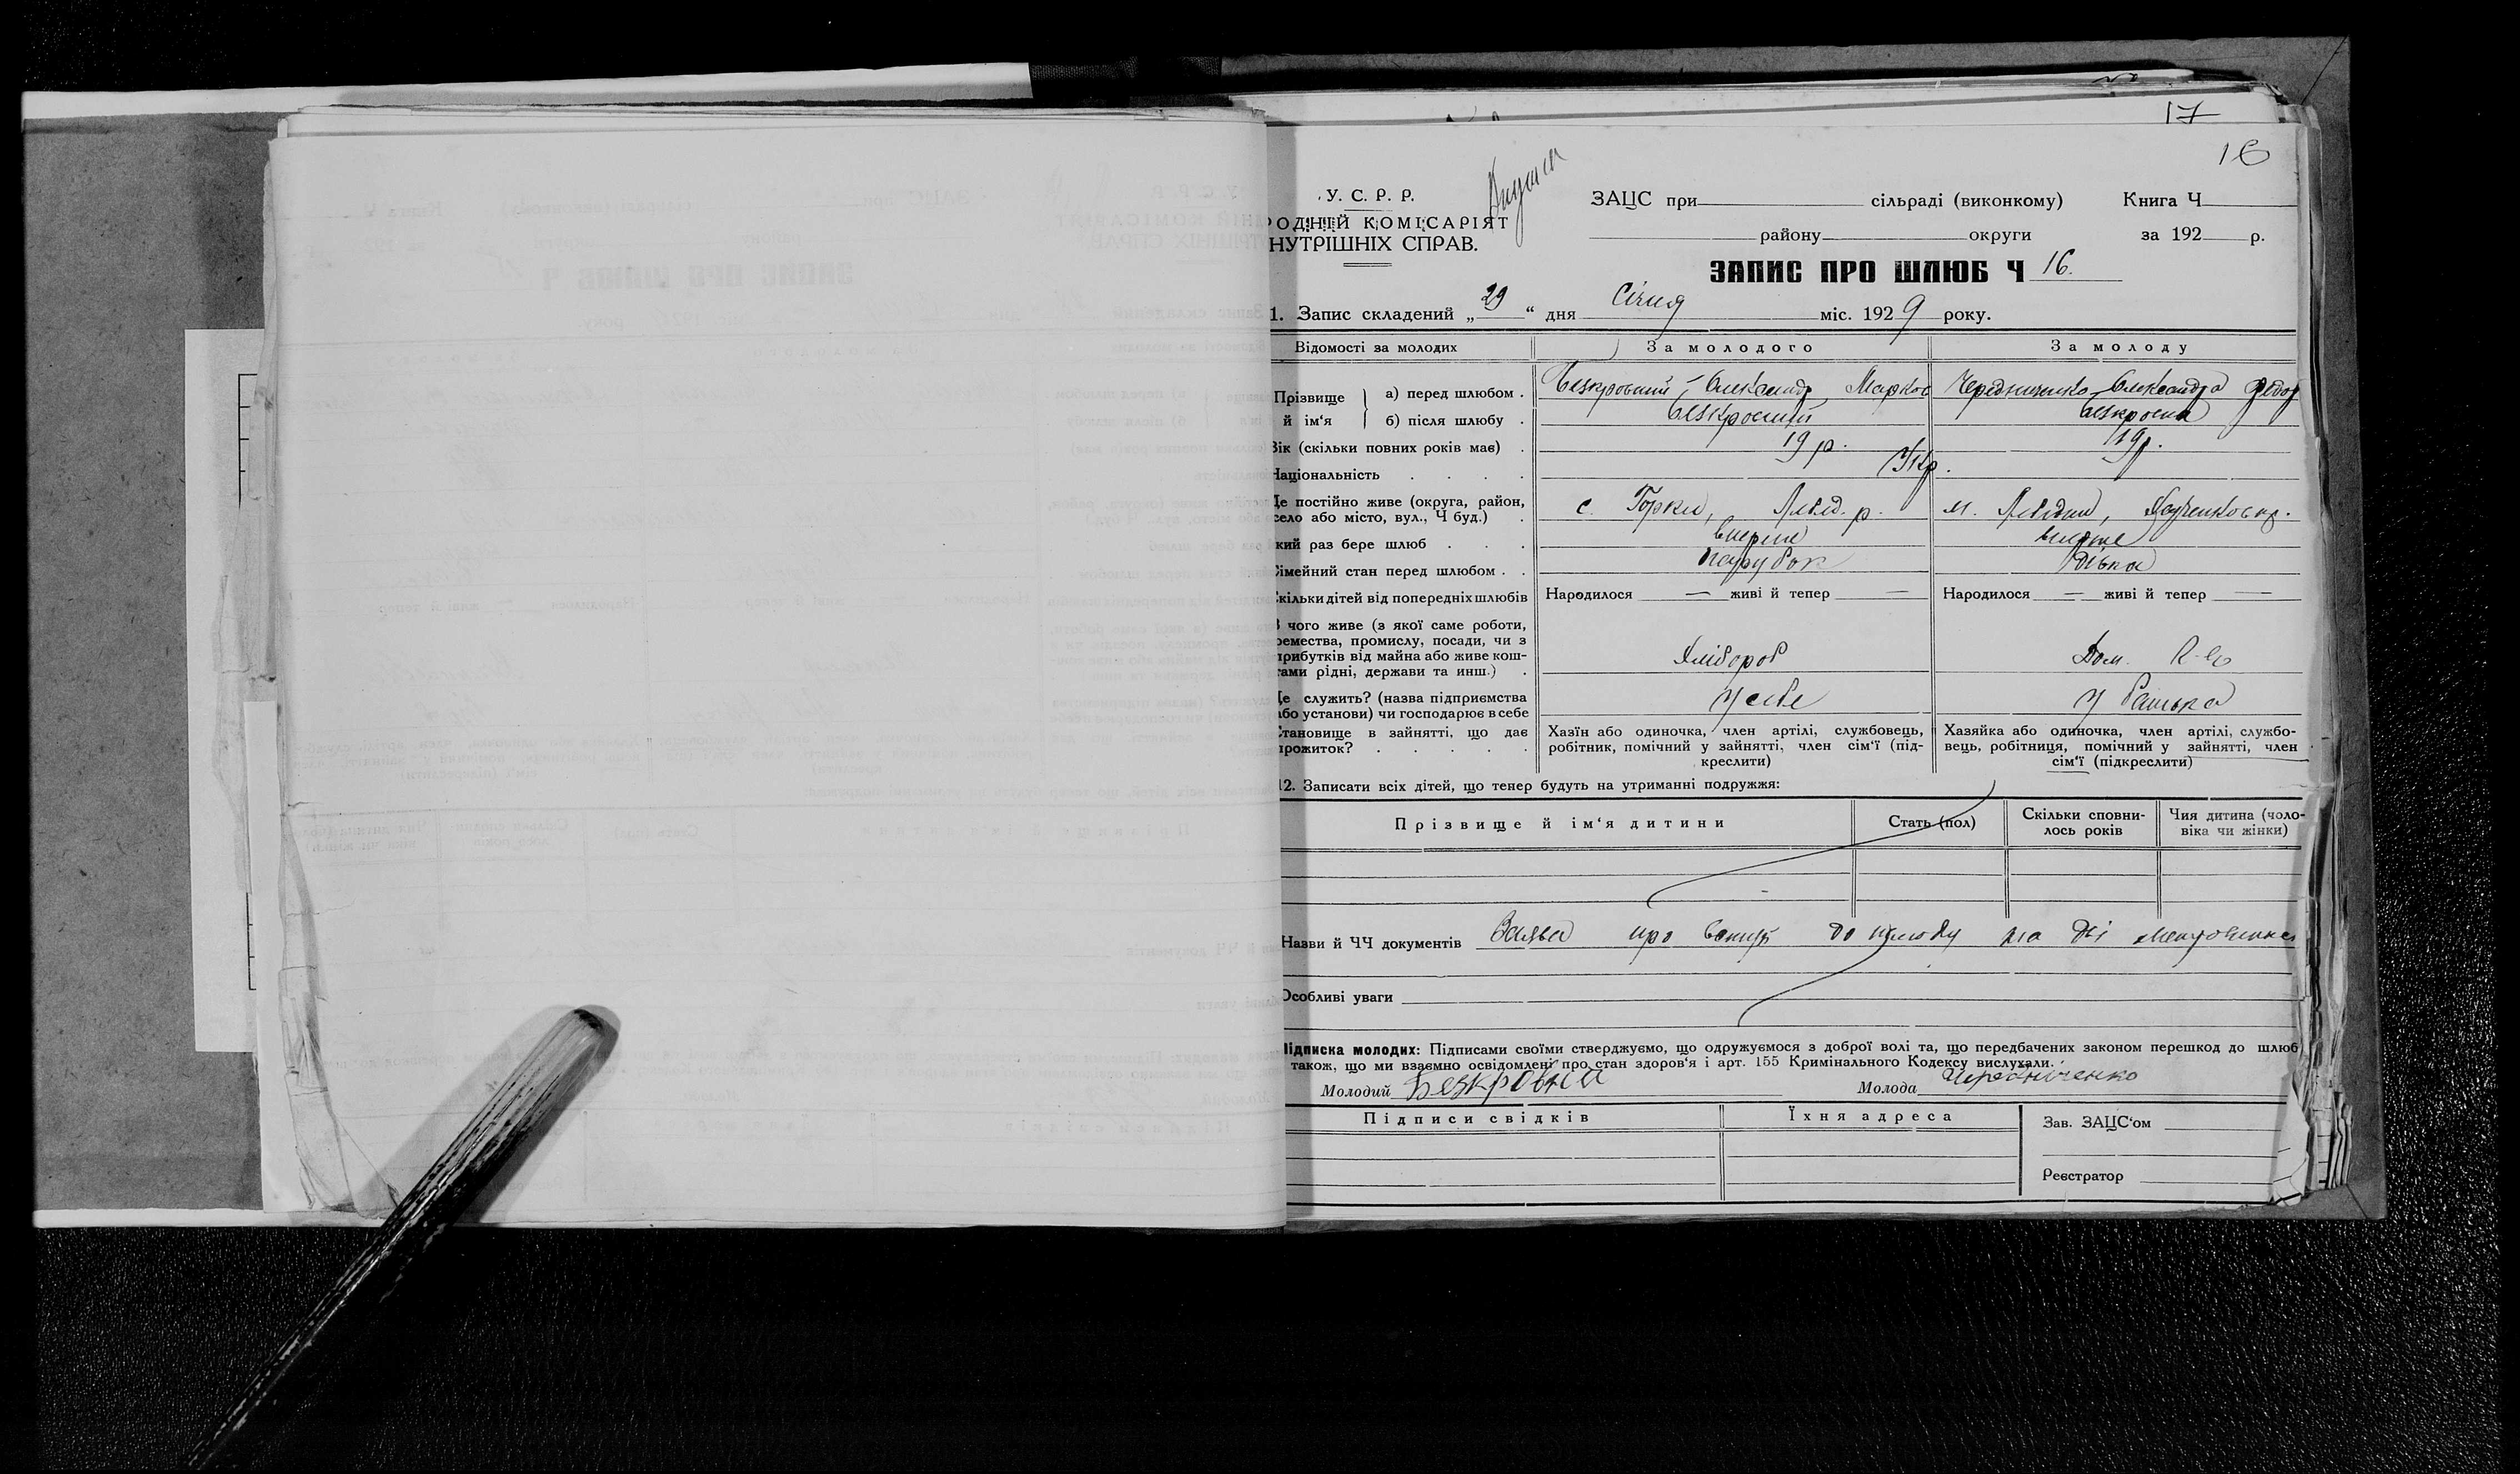 17
16
У. С. Р. Р.
РОДНІЙ КОМІСАРІЯТ
НУТРІШНІХ СПРАВ.
ЗАЦС при сільраді (виконкому) Книга Ч
району округи за 192 р.
ЗАПИС ПРО ШЛЮБ Ч 16.
1. Запис складений „29“ дня Січня міс. 1929 року.
Відомості за молодих За молодого За молоду
Прізвище й ім'я а) перед шлюбом . Безкровний Олександр Марков Чередниченко Олександра Федор
б) після шлюбу . Безкровний Безкровна
Вік (скільки повних років має) . 19 р. 19 р.
Національність . . . . Укр.
Де постійно живе (округа, район, село або місто, вул., Ч буд.) . с. Горки, р. м.
кий раз бере шлюб . . . вперше вперше
Сімейний стан перед шлюбом . . парубок дівка
Скільки дітей від попередніх шлюбів Народилося — живі й тепер — Народилося — живі й тепер —
З чого живе (з якої саме роботи,
ремества, промислу, посади, чи з
прибутків від майна або живе кош-
тами рідні, держави та инш.) . Хлібороб Дом.
Де служить? (назва підприємства
або установи) чи господарює в себе У себе У батька
Становище в зайнятті, що дає
прожиток? . . . . .
Хазїн або одиночка, член артілі, службовець,
робітник, помічний у зайнятті, член сім'ї (під-
креслити)
Хазяйка або одиночка, член артілі, службо-
вець, робітниця, помічний у зайнятті, член
сім'ї (підкреслити)
12. Записати всіх дітей, що тепер будуть на утриманні подружжя:
Прізвище й ім'я дитини Стать (пол) Скільки сповни-
лось років Чия дитина (чоло-
віка чи жінки)
Назви й ЧЧ документів Заява про вступ до шлюбу та дві
Особливі уваги
Підписка молодих: Підписами своїми стверджуємо, що одружуємося з доброї волі та, що передбачених законом перешкод до шлюб
також, що ми взаємно освідомлені про стан здоров'я і арт. 155 Кримінального Кодексу вислухали.
Молодий Безкровний Молода Чередниченко
Підписи свідків Їхня адреса Зав. ЗАЦС'ом
Реєстратор